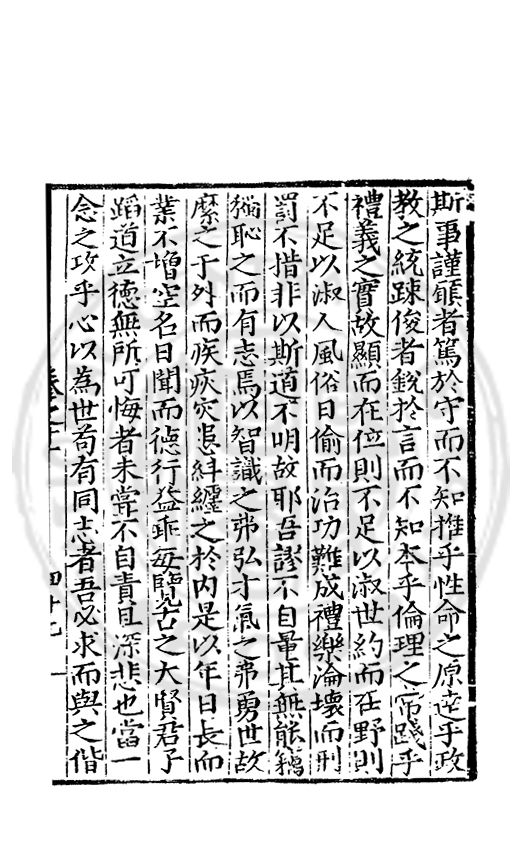 斯事謹願者篤於守而不知推乎性命之原達乎政
教之統踈俊者銳於言而不知本乎倫理之常踐乎
禮義之實故顯而在位則不足以淑世約而在野則
不足以淑人風俗日偷而治功難成禮樂淪壞而刑
罰不措非以斯道不明故耶吾謬不自量其無能竊
猶恥之而有志焉以智識之弗弘才氣之弗勇世故
縻之于外而疾疢灾患糾纏之於內是以年日長而
業不增空名日聞而德行益乖每覽古之大賢君子
蹈道立德無所可悔者未嘗不自責且深悲也當一
念之攻乎心以為世苟有同志者吾必求而與之偕
四十七